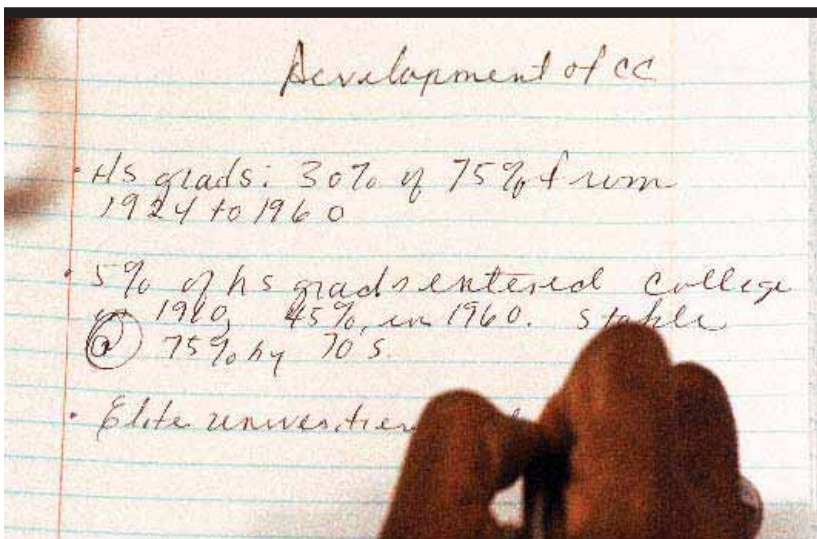 Development of CC
• HS grads: 30% of 75% from
1924 to 1960
• 5% of hs grads entered college
1910, 45% in 1960. stable
@ 75% by 70s.
• Elite